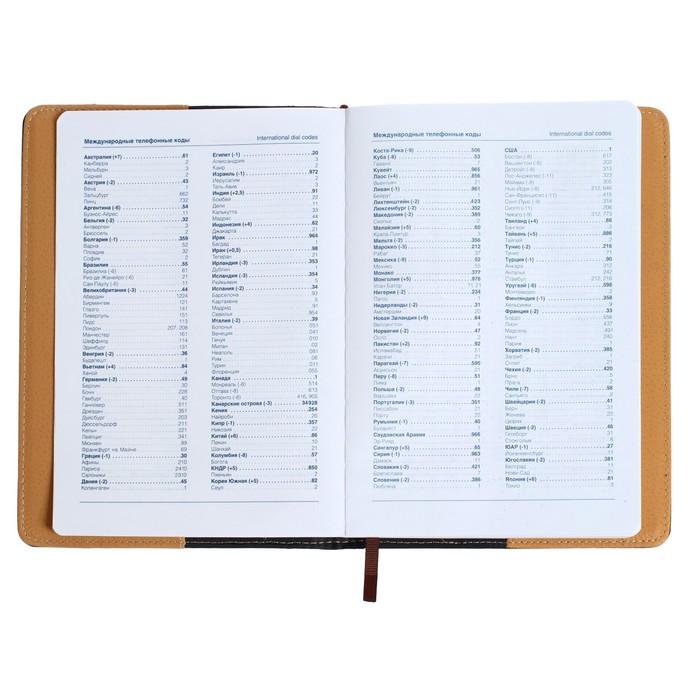 Международные телефонные коды
International dial codes
Австралия (+7) 61
Канберра 2
Мельбурн 3
Сидней 2
Австрия (-2) 43
Вена 1
Зальцбург 662
Линц 732
Аргентина (-6) 54
Буэнос-Айрес 11
Бельгия (-2) 32
Антверпен 3
Брюссель 2
Болгария (-1) 359
Варна 52
Пловдив 32
София 2
Бразилия 55
Бразилиа (-6) 61
Рио-де-Жанейро (-6) 21
Сан-Паулу (-6) 11
Великобритания (-3) 44
Абердин 1224
Бирмингем 121
Глазго 141
Ливерпуль 151
Лидс 113
Лондон 207, 208
Манчестер 161
Шеффилд 114
Эдинбург 131
Венгрия (-2) 36
Будапешт 1
Вьетнам (+4) 84
Ханой 4
Германия (-2) 49
Берлин 30
Бонн 228
Гамбург 40
Ганновер 511
Дрезден 351
Дуйсбург 203
Дюссельдорф 211
Кельн 221
Лейпциг 341
Мюнхен 89
Франкфурт на Майне 69
Греция (-1) 30
Афины 210
Лариса 2410
Салоники 2310
Дания (-2) 45
Копенгаген 1
Египет (-1) 20
Александрия 3
Каир 2
Израиль (-1) 972
Иерусалим 2
Тель-Авив 3
Индия (+2,5) 91
Бомбей 22
Дели 11
Калькутта 33
Мадрас 44
Индонезия (+4) 62
Джакарта 21
Ирак 964
Багдад 1
Иран (+0,5) 98
Тегеран 21
Ирландия (-3) 353
Дублин 1
Исландия (-3) 354
Рейкьявик 5
Испания (-2) 34
Барселона 93
Картахена 5
Мадрид 91
Севилья 954
Италия (-2) 39
Болонья 051
Венеция 041
Генуя 010
Милан 02
Неаполь 081
Рим 06
Турин 011
Флоренция 055
Канада 1
Монреаль (-8) 514
Оттава (-8) 613
Торонто (-8) 416, 905
Канарские острова (-3) 34928
Кения 254
Найроби 20
Кипр (-1) 357
Никосия 2
Китай (+5) 86
Пекин 10
Шанхай 21
Колумбия (-8) 57
Богота 1
КНДР (+5) 850
Пхеньян 2
Корея Южная (+5) 82
Сеул 2
Международные телефонные коды
International dial codes
Коста-Рика (-9) 506
Куба (-8) 53
Гавана 7
Кувейт 965
Лаос (+4) 856
Вьентьян
Ливан (-1) 961
Бейрут 1
Лихтенштейн (-2) 423
Люксембург (-2) 352
Македония (-2) 389
Скопье 2
Малайзия (+5) 60
Куала-Лумпур 3
Мальта (-2) 356
Марокко (-3) 212
Рабат 37
Мексика (-9) 52
Мехико 55
Монако 377
Монголия (+5) 976
Улан-Батор 11, 21
Нигерия (-2) 234
Лагос 1
Нидерланды (-2) 31
Амстердам 20
Новая Зеландия (+9) 64
Веллингтон 4
Норвегия (-2) 47
Осло 2
Пакистан (+2) 92
Исламабад
Карачи 21
Парагвай (-7) 595
Асунсьон 21
Перу (-8) 51
Лима 1
Польша (-2) 48
Варшава 22
Португалия (-3) 351
Лиссабон 21
Порту 22
Румыния (-1) 40
Бухарест 1
Саудовская Аравия 966
Эр-Рияд 1
Сингапур (+5) 65
Сирия (-1) 963
Дамаск 11
Словакия (-2) 421
Братислава 2
Словения (-2) 386
Любляна 1
США 1
Бостон (-8) 617
Вашингтон (-8) 202
Детройт (-8) 313
Лос-Анджелес (-11) 323
Майами (-8) 305
Нью-Йорк (-8) 212, 646
Сан-Франциско (-11) 415
Сиэтл (-11) 206
Чикаго (-9) 312, 773
Таиланд (+4) 66
Бангкок 2
Тайвань (+5) 886
Тайпей 2
Тунис (-2) 216
Тунис 71
Турция (-1) 90
Анкара 312
Анталья 242
Стамбул 212, 216
Уругвай (-6) 598
Монтевидео 2
Финляндия (-1) 358
Хельсинки 9
Франция (-2) 33
Бордо 556
Лион 437
Марсель 491
Нант 240
Париж 1
Хорватия (-2) 385
Загреб 1
Сплит 21
Чехия (-2) 420
Брно 5
Прага 2
Чили (-7) 56
Сантьяго 2
Швейцария (-2) 41
Берн 31
Женева 22
Цюрих 1
Швеция (-2) 46
Гетеборг 31
Стокгольм 8
ЮАР (-1) 27
Йоханнесбург 11
Югославия (-2) 381
Белград 11
Нови-Сад 21
Япония (+6) 81
Токио 3